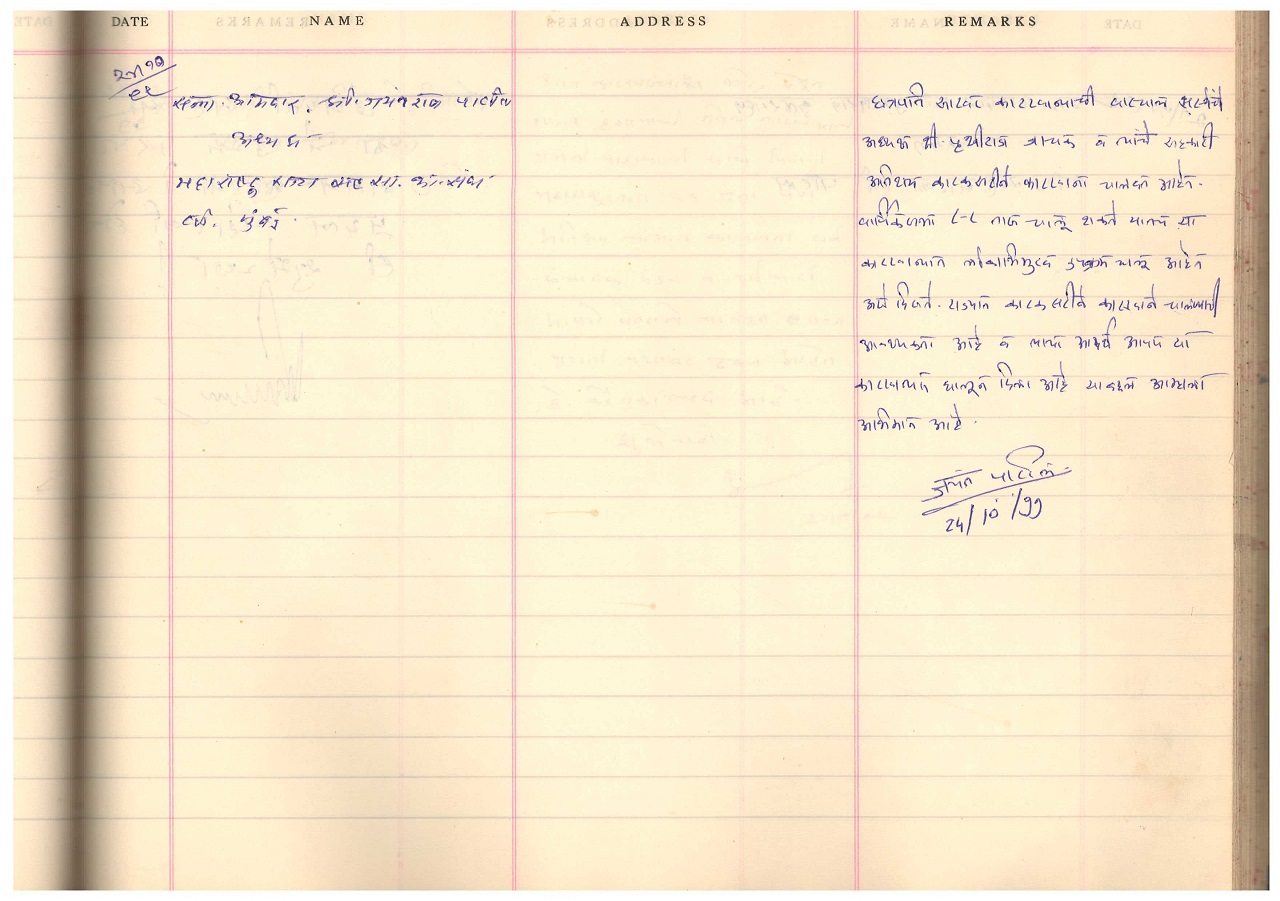 DATE NAME ADDRESS REMARKS
२४/१०
९९
सन्मा. आमदार. श्री. जयंतराव पाटील
अध्यक्ष
महाराष्ट्र राज्य सह. सा. का. संघ
लि. मुंबई.
छत्रपति साखर कारखान्याची वाटचाल सध्याचे
अध्यक्ष श्री. पृथ्वीराज जाचक व त्यांचे सहकारी
अतिशय काटकसरीने कारखाना चालवत आहेत.
८-८ चालू शकते याच
कारखान्यात चालू आहेत
असे दिसते. राज्यात काटकसरीने कारखाने चालवण्याची
आवश्यकता आहे व त्याचा आदर्श आपण या
कारखान्यात घालून दिला आहे याबद्दल आम्हाला
अभिमान आहे.
जयंत पाटील
24/10/99